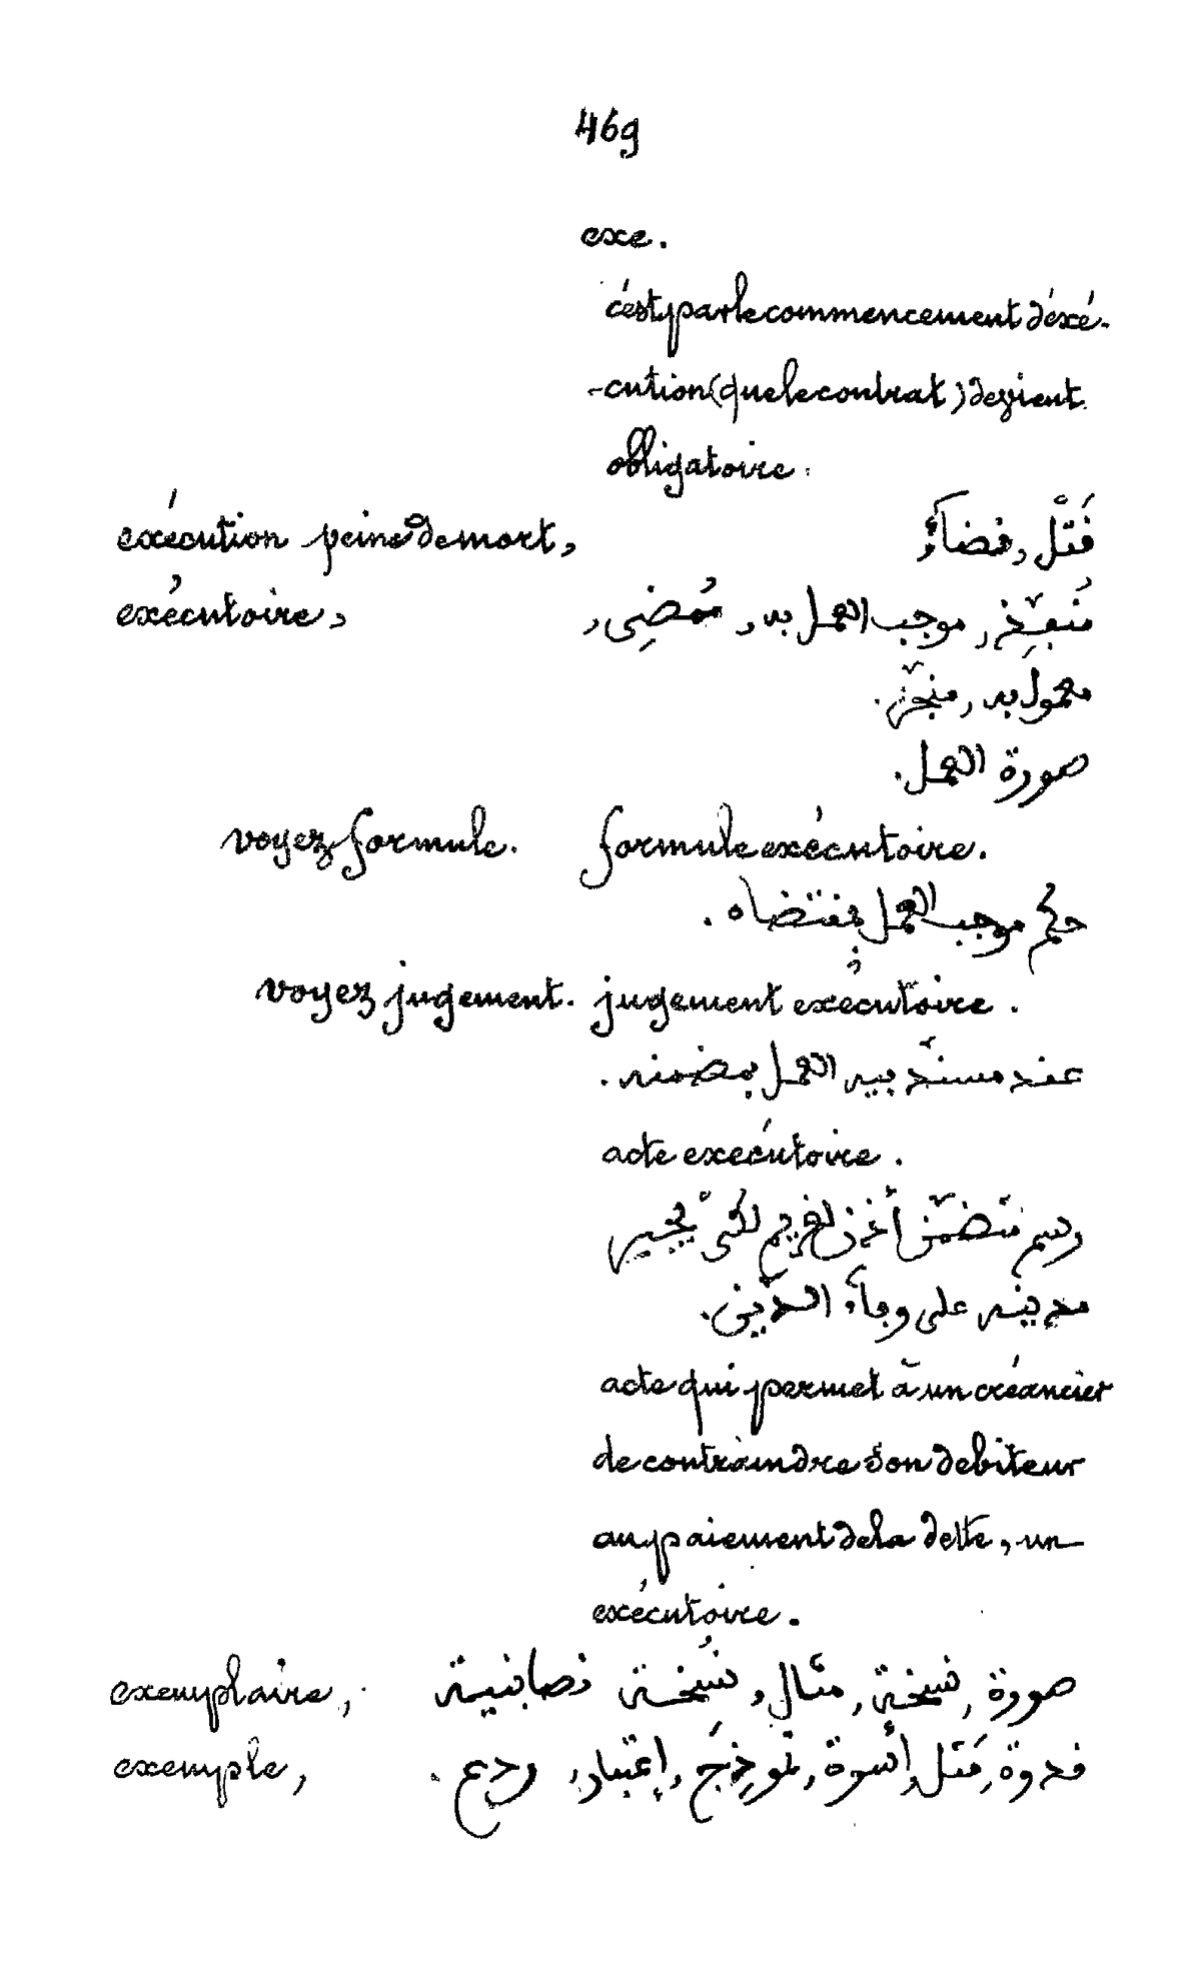 469
exe.
c'est par le commencement d'éxé-
-cution (que le contrat) devient
obligatoire.
exécution peine de mort, قَتْل, قضاءٌ
exécutoire, مُنَفِّذ, موجب العمل به, مُمْضِى,
معمول به, منجّز.
صورة العمل.
voyez formule. formule exécutoire.
حكم موجب العمل بمقتضاه.
voyez jugement. jugement exécutoire.
عقد مستدّ بيه العمل بمضمنه.
acte exécutoire.
رسم متضمّن لغريم لكى يجبر
مدينه على وفاء الدّين.
acte qui permet à un créancier
de contraindre son debiteur
au paiement de la dette, un
exécutoire.
exemplaire, صورة, نسخة, مثال, نُسخة
exemple, قدوة, مَثل, أُسوة, نموذَج, إعتبار,